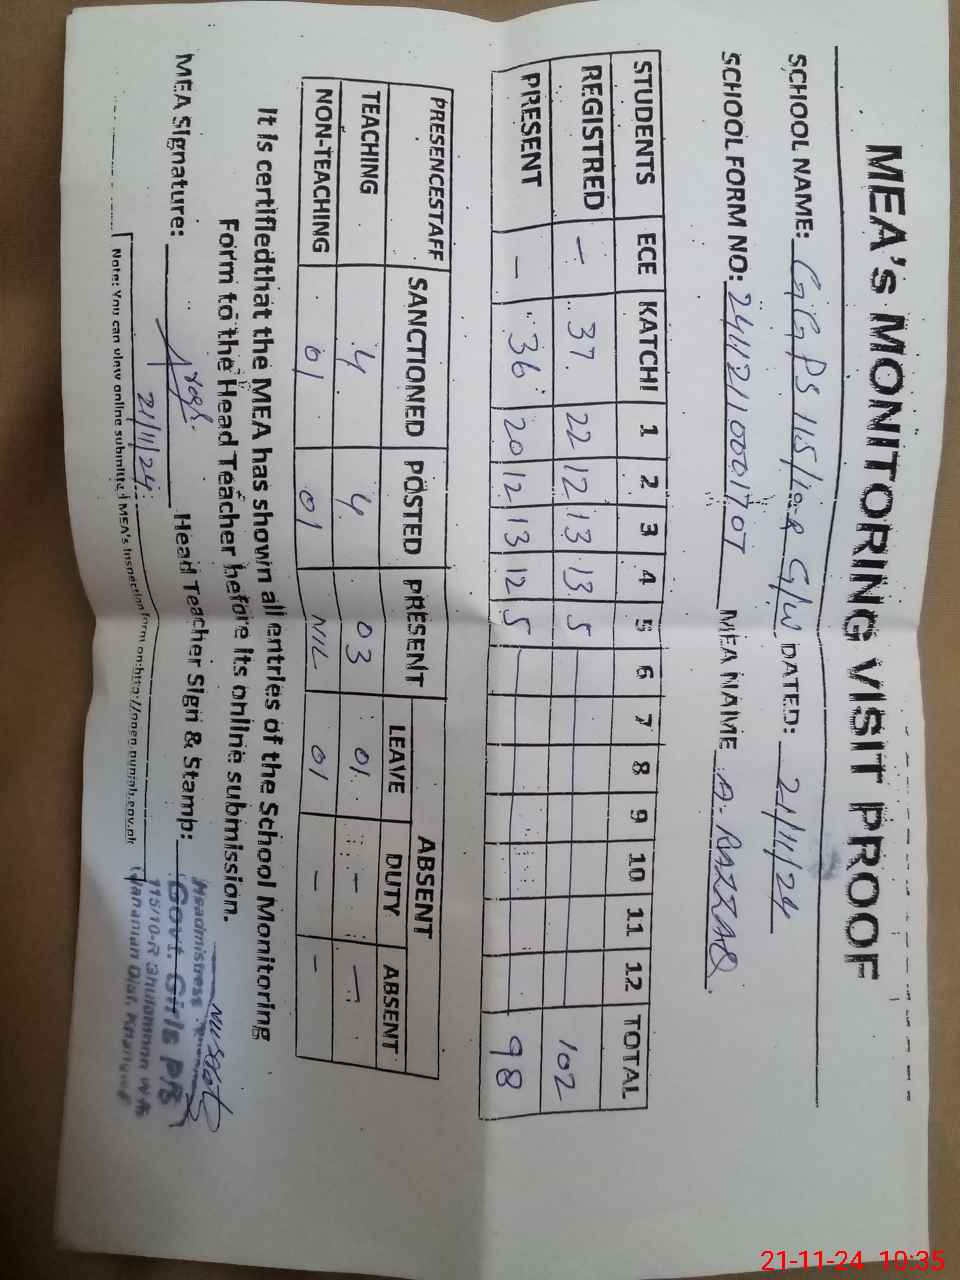 MEA's MONITORING VISIT PROOF
SCHOOL NAME: GGPS 115/10R G/W DATED: 21/11/24
SCHOOL FORM NO: MEA NAME A. RAZZAQ
STUDENTS ECE KATCHI 1 2 3 4 5 6 7 8 9 10 11 12 TOTAL
REGISTRED – 37 22 12 13 13 5 102
PRESENT – 36 20 12 13 12 5 98
PRESENCESTAFF SANCTIONED POSTED PRESENT ABSENT
LEAVE DUTY ABSENT
TEACHING 4 4 03 01 – –
NON-TEACHING 01 01 NIL 01 – –
It is certifiedthat the MEA has shown all entries of the School Monitoring
Form to the Head Teacher before its online submission.
MEA Signature: Head Teacher Sign & Stamp:
21/11/24
Headmistress
Govt. Girls P/S
115/10-R
Note: You can view online submitted MEA's Inspection form on:http://open.punjab.gov.pk
21-11-24 10:35